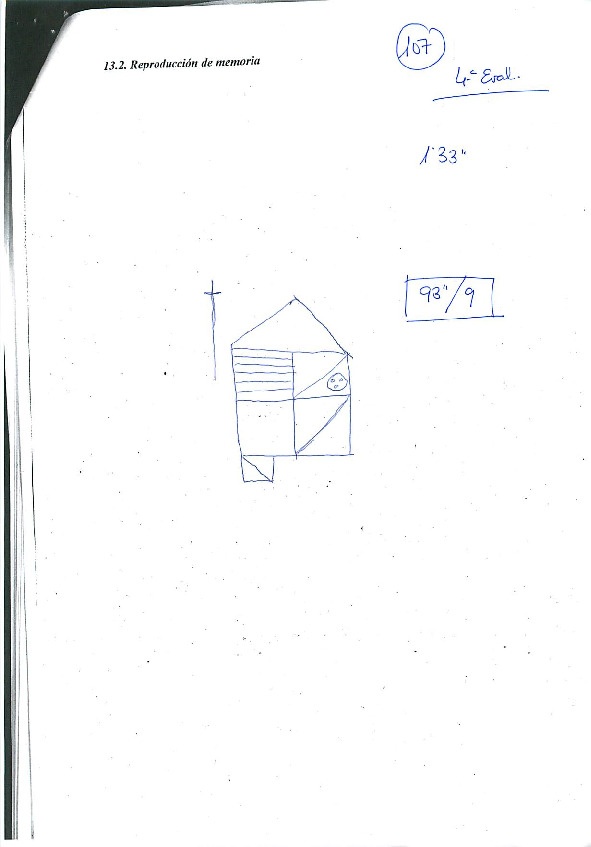 107
13.2. Reproducción de memoria
4ª Eval..
1'33"
93"/9